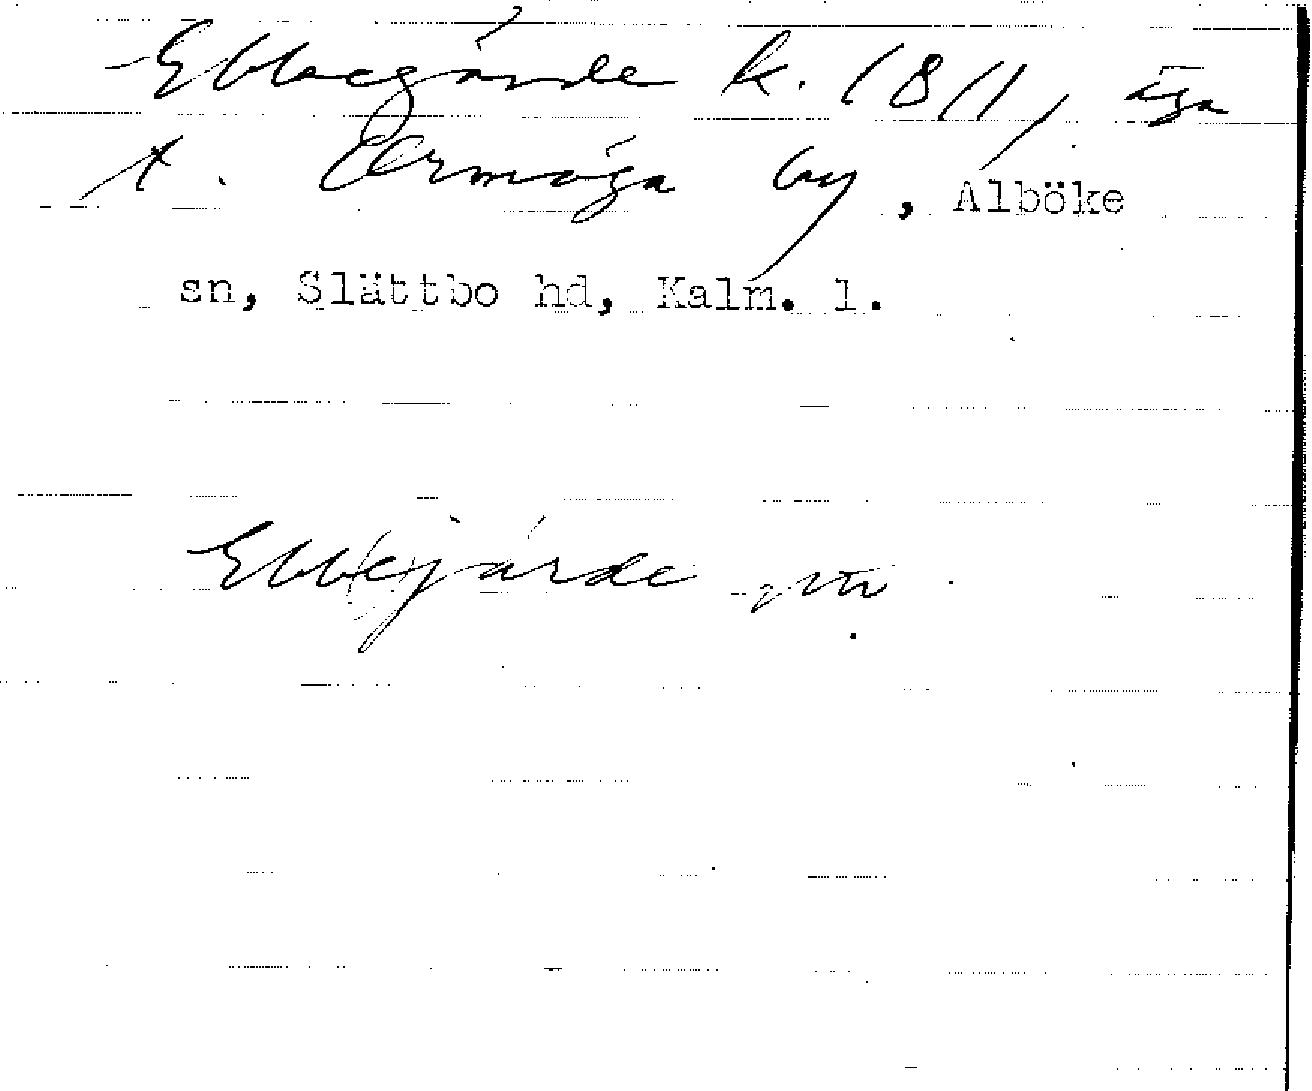 Ebbegärde k. 1811, äga
t. Ormöga by, Alböke
sn, Slättbo hd, Kalm. l.
Ebbejärde